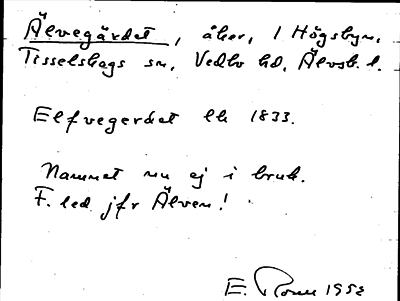 Älvegärdet, åker, i Högsbyn,
Tisselskogs sn, Vedbo hd, Älvsb. l.
Elfvegerdet lh 1833.
Namnet nu ej i bruk.
F. led jfr Älven!
E. Rosén 1952